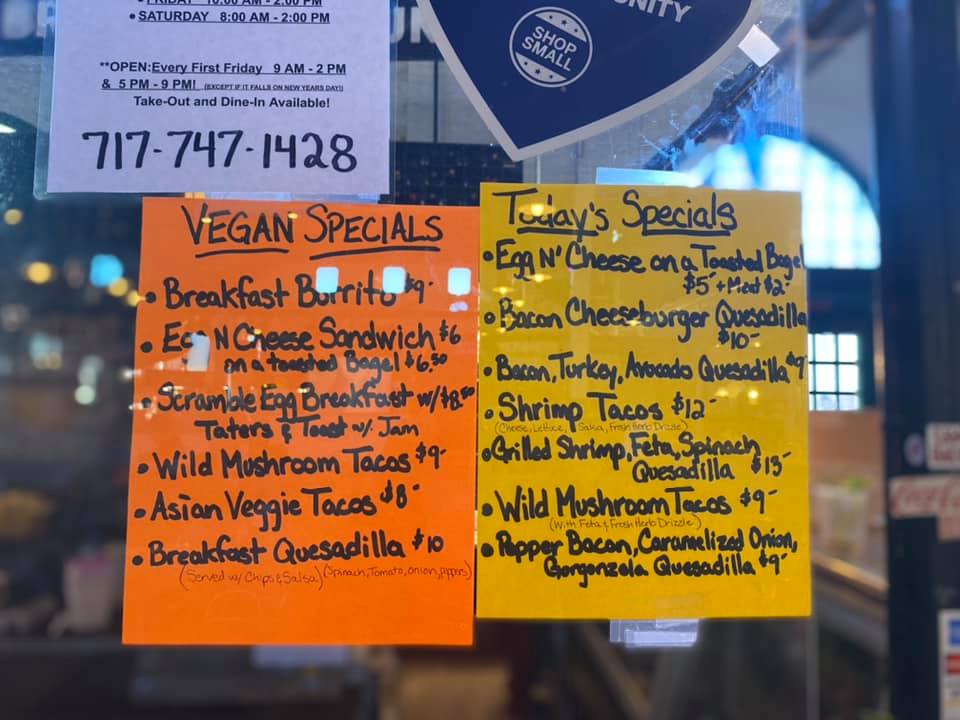 • FRIDAY 10:00 AM - 2:00 PM
• SATURDAY 8:00 AM - 2:00 PM
**OPEN: Every First Friday 9 AM - 2 PM
& 5 PM - 9 PM! (EXCEPT IF IT FALLS ON NEW YEARS DAY!)
Take-Out and Dine-In Available!
717-747-1428
SHOP
SMALL
VEGAN SPECIALS
• Breakfast Burrito $9-
• Egg N Cheese Sandwich $6
on a toasted Bagel $6.50
• Scramble Egg Breakfast w/ $8.50
Taters & Toast w/. Jam
• Wild Mushroom Tacos $9-
• Asian Veggie Tacos $8-
• Breakfast Quesadilla $10
(Served w/ Chips & Salsa) (Spinach, Tomato, onion, peppers)
Today's Specials
• Egg N' Cheese on a Toasted Bagel
$5 + Meat $2-
• Bacon Cheeseburger Quesadilla
$10-
• Bacon, Turkey, Avocado Quesadilla $9
• Shrimp Tacos $12-
(Cheese, Lettuce, Salsa, Fresh Herb Drizzle)
• Grilled Shrimp, Feta, Spinach
Quesadilla $13-
• Wild Mushroom Tacos $9-
(With Feta & Fresh Herb Drizzle)
• Pepper Bacon, Caramelized Onion,
Gorgonzola Quesadilla $9-